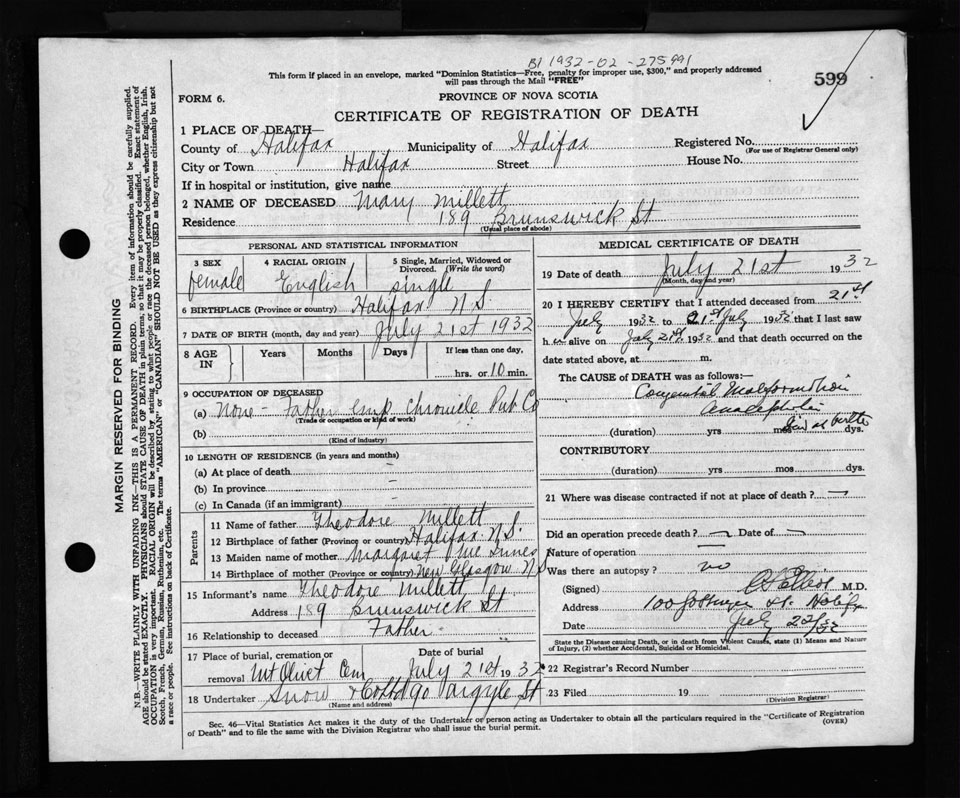 B1 1932-02-275991
This form if placed in an envelope, marked "Dominion Statistics—Free, penalty for improper use, $300," and properly addressed
will pass through the Mail "FREE"
599
FORM 6.
PROVINCE OF NOVA SCOTIA
CERTIFICATE OF REGISTRATION OF DEATH
1 PLACE OF DEATH—
County of Halifax Municipality of Halifax Registered No.
(For use of Registrar General only)
City or Town Halifax Street House No.
If in hospital or institution, give name
2 NAME OF DECEASED Mary Millett
Residence 189 Brunswick St
(Usual place of abode)
PERSONAL AND STATISTICAL INFORMATION
3 SEX 4 RACIAL ORIGIN 5 Single, Married, Widowed or Divorced. (Write the word)
female English single
6 BIRTHPLACE (Province or country) Halifax N S
7 DATE OF BIRTH (month, day and year) July 21st 1932
8 AGE IN Years Months Days If less than one day,
hrs. or 10 min.
9 OCCUPATION OF DECEASED
(a) None - Father emp Chronicle Pub Co
(Trade or occupation or kind of work)
(b)
(Kind of industry)
10 LENGTH OF RESIDENCE (in years and months)
(a) At place of death -
(b) In province -
(c) In Canada (if an immigrant) -
Parents
11 Name of father Theodore Millett
12 Birthplace of father (Province or country) Halifax N.S.
13 Maiden name of mother Margaret Innes
14 Birthplace of mother (Province or country) New Glasgow N S
15 Informant's name Theodore Millett
Address 189 Brunswick St
16 Relationship to deceased Father
17 Place of burial, cremation or removal Mt Olivet Cem
Date of burial July 21st 1932
18 Undertaker Snow & Co Ltd 90 Argyle St
(Name and address)
MEDICAL CERTIFICATE OF DEATH
19 Date of death July 21st 1932
(Month, day and year)
20 I HEREBY CERTIFY that I attended deceased from 21st
July 1932 to 21st July 1932 that I last saw
h er alive on July 21st 1932 and that death occurred on the
date stated above, at m.
The CAUSE OF DEATH was as follows:—
Congenital Malformation
(duration) yrs mos dys.
CONTRIBUTORY
(duration) yrs mos dys.
21 Where was disease contracted if not at place of death? —
Did an operation precede death? — Date of —
Nature of operation —
Was there an autopsy? no
(Signed) M.D.
Address 100 St.
Date July 22/32
State the Disease causing Death, or in death from Violent Causes, state (1) Means and Nature
of Injury, (2) whether Accidental, Suicidal or Homicidal.
22 Registrar's Record Number
23 Filed 19
(Division Registrar)
Sec. 46—Vital Statistics Act makes it the duty of the Undertaker or person acting as Undertaker to obtain all the particulars required in the "Certificate of Registration
of Death" and to file the same with the Division Registrar who shall issue the burial permit.
(OVER)
MARGIN RESERVED FOR BINDING
N.B.—WRITE PLAINLY WITH UNFADING INK—THIS IS A PERMANENT RECORD. Every item of information should be carefully supplied.
AGE should be stated EXACTLY. PHYSICIANS should STATE CAUSE OF DEATH in plain terms, so that it may be properly classified. Exact statement of
OCCUPATION is very important. RACIAL ORIGIN will be described by stating to what people or race the deceased person belonged, whether English, Irish,
Scotch, French, German, Russian, Ruthenian, etc. The terms "AMERICAN" or "CANADIAN" SHOULD NOT BE USED as they express citizenship but not
a race or people. See instructions on back of Certificate.